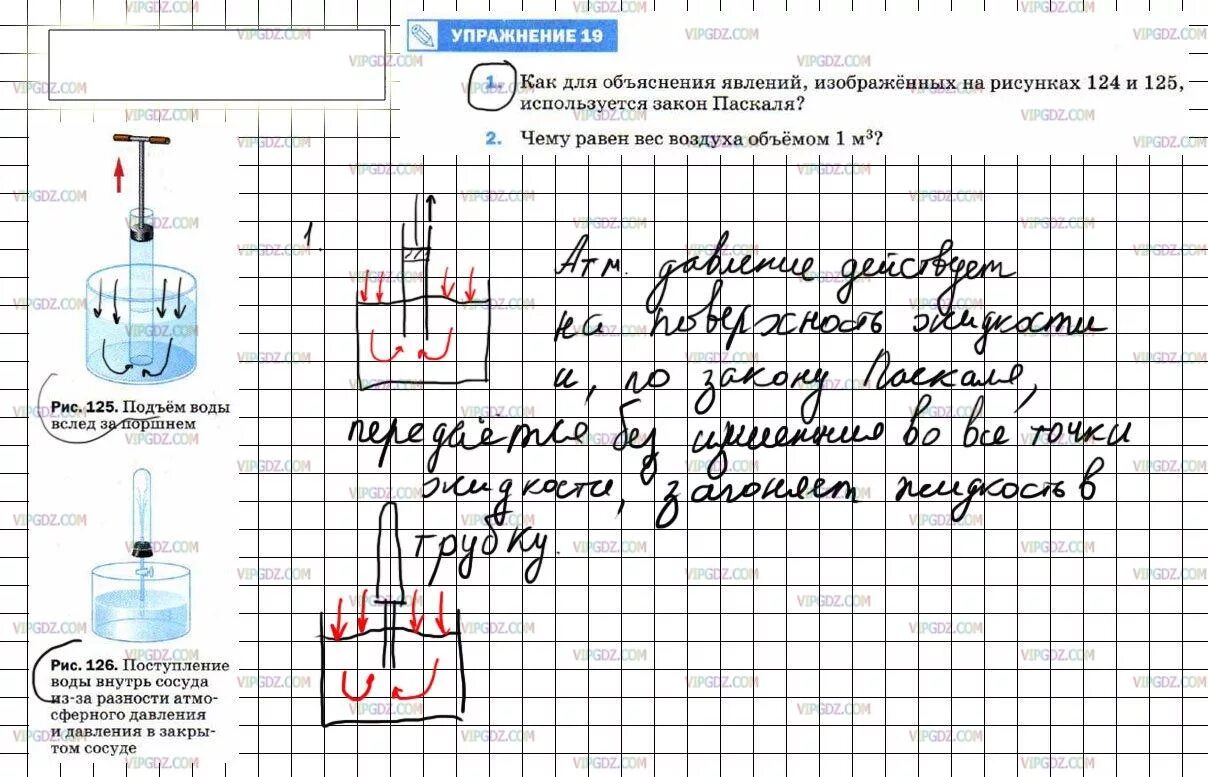 УПРАЖНЕНИЕ 19
1. Как для объяснения явлений, изображённых на рисунках 124 и 125,
используется закон Паскаля?
2. Чему равен вес воздуха объёмом 1 м³?
1.
Атм. давление действует
на поверхность жидкости
и, по закону Паскаля,
передаётся без изменения во все точки
жидкости, загоняет жидкость в
трубку.
Рис. 125. Подъём воды
вслед за поршнем
Рис. 126. Поступление
воды внутрь сосуда
из-за разности атмо-
сферного давления
и давления в закры-
том сосуде
VIPGDZ.COM